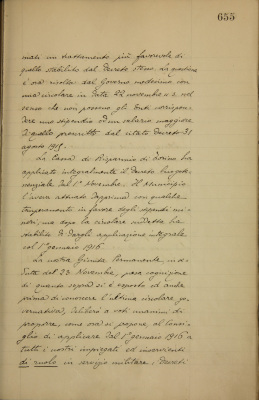 655
nuati un trattamento più favorevole di
quello stabilito dal Decreto stesso. La questione
è ora risolta dal Governo medesimo con
una circolare in data 22 novembre u.s. nel
senso che non possono gli Enti corrispon-
dere uno stipendio od un salario maggiore
di quello prescritto dal citato Decreto 31
agosto 1915.
La Cassa di Risparmio di Torino ha
applicato integralmente il Decreto luogote-
nenziale dal 1° Novembre. Il Municipio
l'aveva attuato dapprima con qualche
temperamento in favore degli stipendi mi-
nori; ma dopo la circolare suddetta ha
stabilito di dargli applicazione integrale
col 1° gennaio 1916.
La nostra Giunta Permanente, in se-
duta del 23 Novembre, presa cognizione
di quanto sopra si è esposto ed anche
prima di conoscere l'ultima circolare go-
vernativa, deliberò a voti unanimi di
proporre, come ora si propone, al Consi-
glio, di applicare dal 1° gennaio 1916 a
tutti i nostri impiegati ed inservienti
di ruolo in servizio militare i Decreti